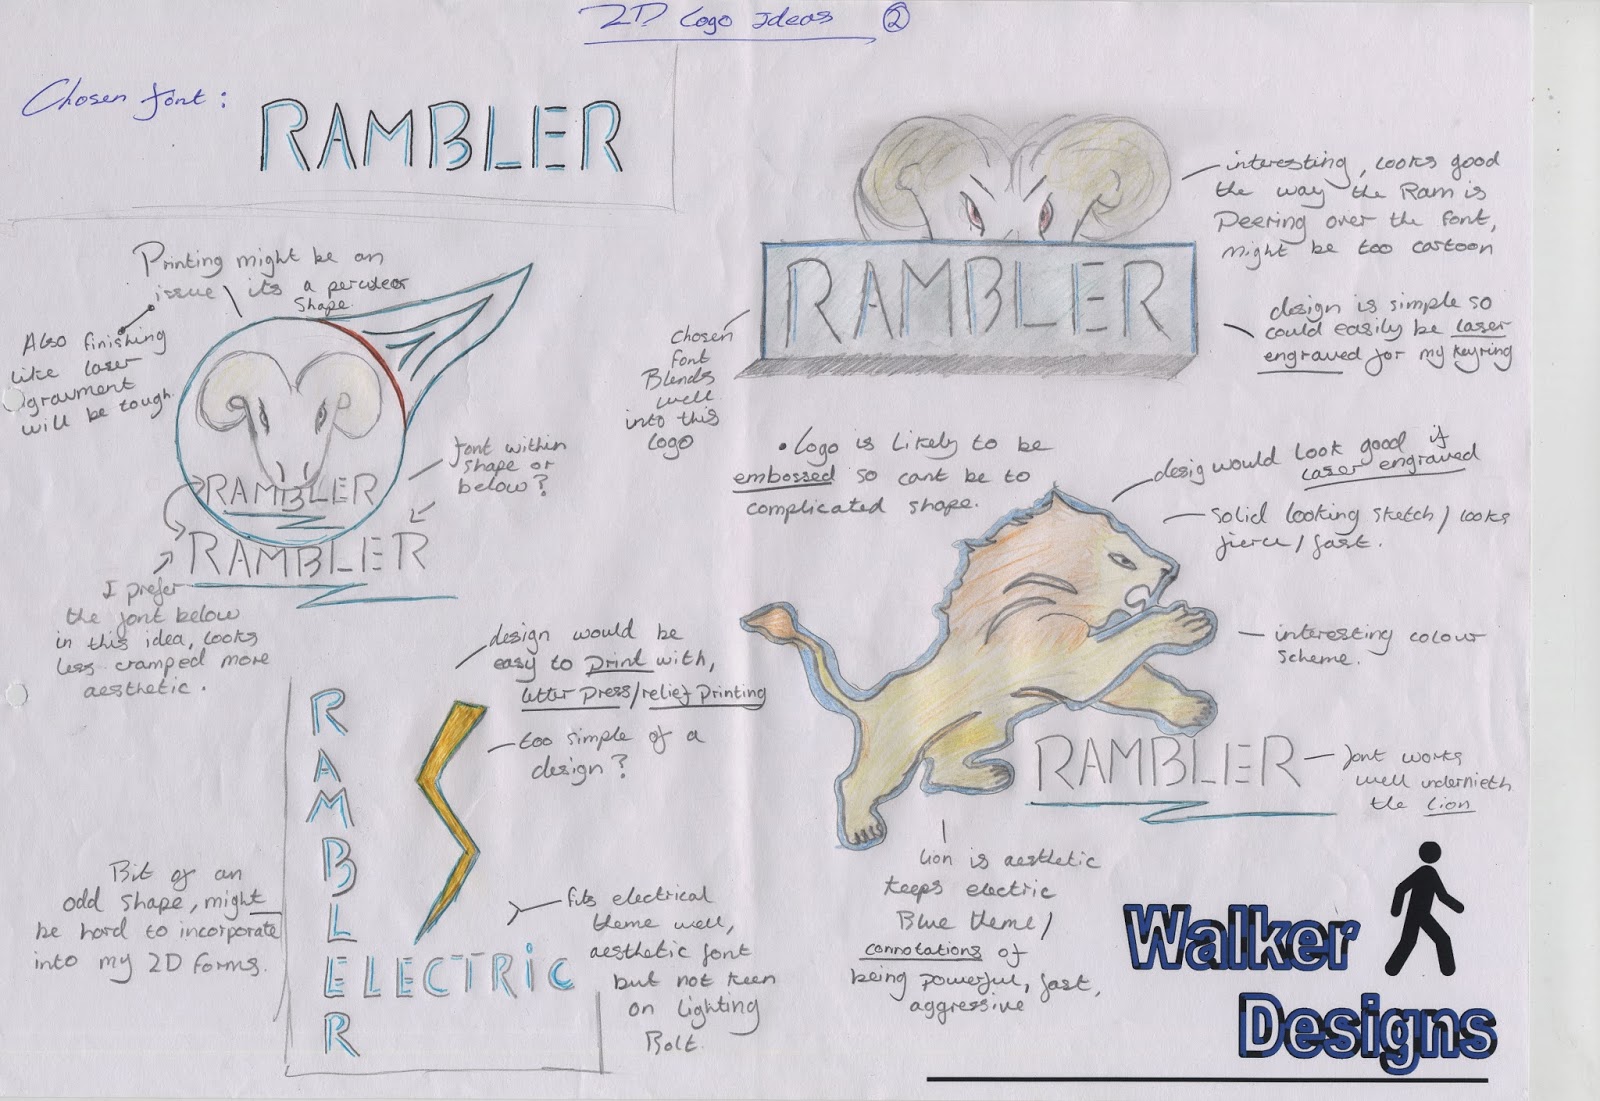 2D Logo Ideas 2
Chosen font:
RAMBLER
Printing might be an
issue its a perculeor
shape.
Also finishing
like laser
gravment
will be tough.
RAMBLER
font within
shape or
below?
RAMBLER
I prefer
the font below
in this idea, looks
less cramped more
aesthetic.
RAMBLER
interesting, looks good
the way the Ram is
Peering over the font,
might be too cartoon
design is simple so
could easily be laser
engraved for my keyring
chosen
font
Blends
well
into this
logo
• Logo is likely to be
embossed so cant be to
complicated shape.
desig would look good if
laser engraved
solid looking sketch / looks
fierce / fast.
interesting colour
scheme.
RAMBLER
font works
well undernieth
the lion
Lion is aesthetic
keeps electric
Blue theme /
connotations of
being powerful, fast,
aggressive
design would be
easy to print with,
letter press/relief printing
too simple of a
design?
RAMBLER
ELECTRIC
Bit of an
odd shape, might
be hard to incorporate
into my 2D forms.
fits electrical
theme well,
aesthetic font
but not keen
on lighting
Bolt.
Walker
Designs